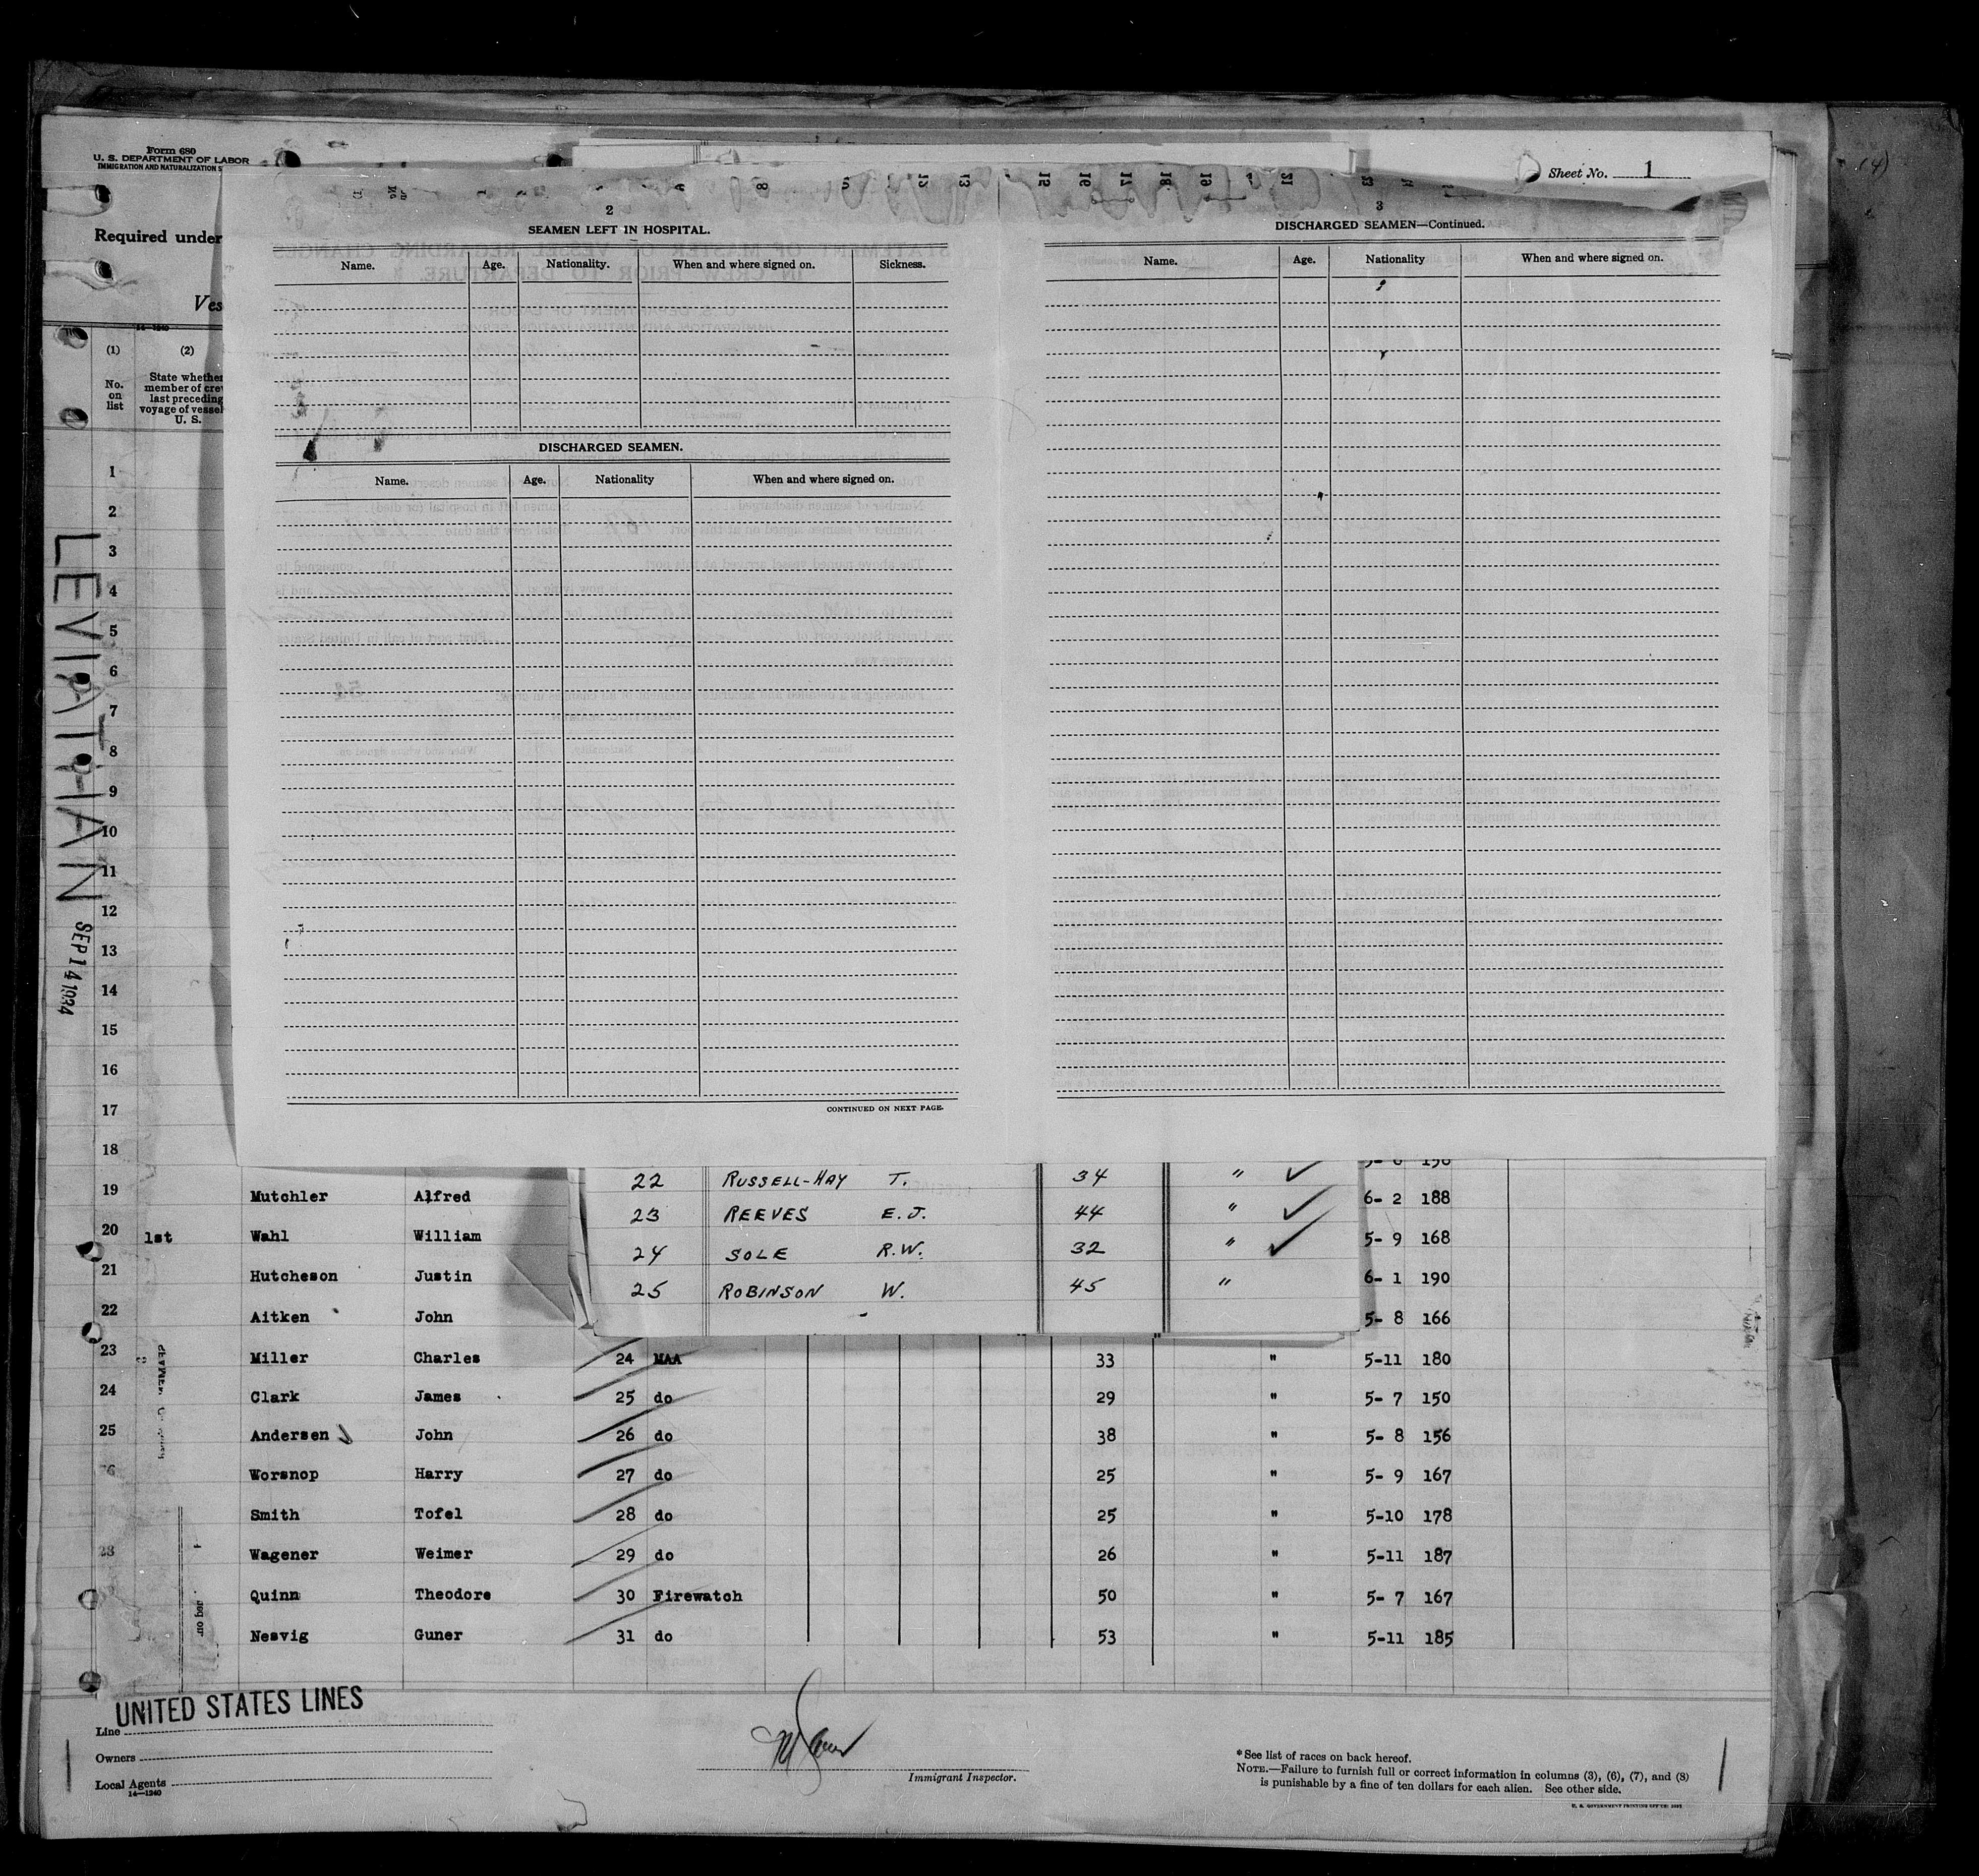 Form 680
U. S. DEPARTMENT OF LABOR
IMMIGRATION AND NATURALIZATION S
Sheet No. 1
(4)
Required under
Ves
14—1240
(1) (2)
No. on list
State whether member of crew last preceding voyage of vessel U. S.
LEVIATHAN SEP 14 1934
1
2
3
4
5
6
7
8
9
10
11
12
13
14
15
16
17
18
19
20
21
22
23
24
25
28
2
SEAMEN LEFT IN HOSPITAL.
Name. Age. Nationality. When and where signed on. Sickness.
DISCHARGED SEAMEN.
Name. Age. Nationality When and where signed on.
CONTINUED ON NEXT PAGE.
3
DISCHARGED SEAMEN—Continued.
Name. Age. Nationality When and where signed on.
22 RUSSELL-HAY T. 34 "
23 REEVES E.J. 44 "
24 SOLE R.W. 32 "
25 ROBINSON W. 45 "
Mutchler Alfred 6- 2 188
1st Wahl William 5- 9 168
Hutcheson Justin 6- 1 190
Aitken John 5- 8 166
Miller Charles 24 MAA 33 " 5-11 180
Clark James 25 do 29 " 5- 7 150
Andersen John 26 do 38 " 5- 8 156
Worsnop Harry 27 do 25 " 5- 9 167
Smith Tofel 28 do 25 " 5-10 178
Wagener Weimer 29 do 26 " 5-11 187
Quinn Theodore 30 Firewatch 50 " 5- 7 167
Nesvig Guner 31 do 53 " 5-11 185
UNITED STATES LINES
Line
Owners
Local Agents
14—1240
Immigrant Inspector.
*See list of races on back hereof.
NOTE.—Failure to furnish full or correct information in columns (3), (6), (7), and (8)
is punishable by a fine of ten dollars for each alien. See other side.